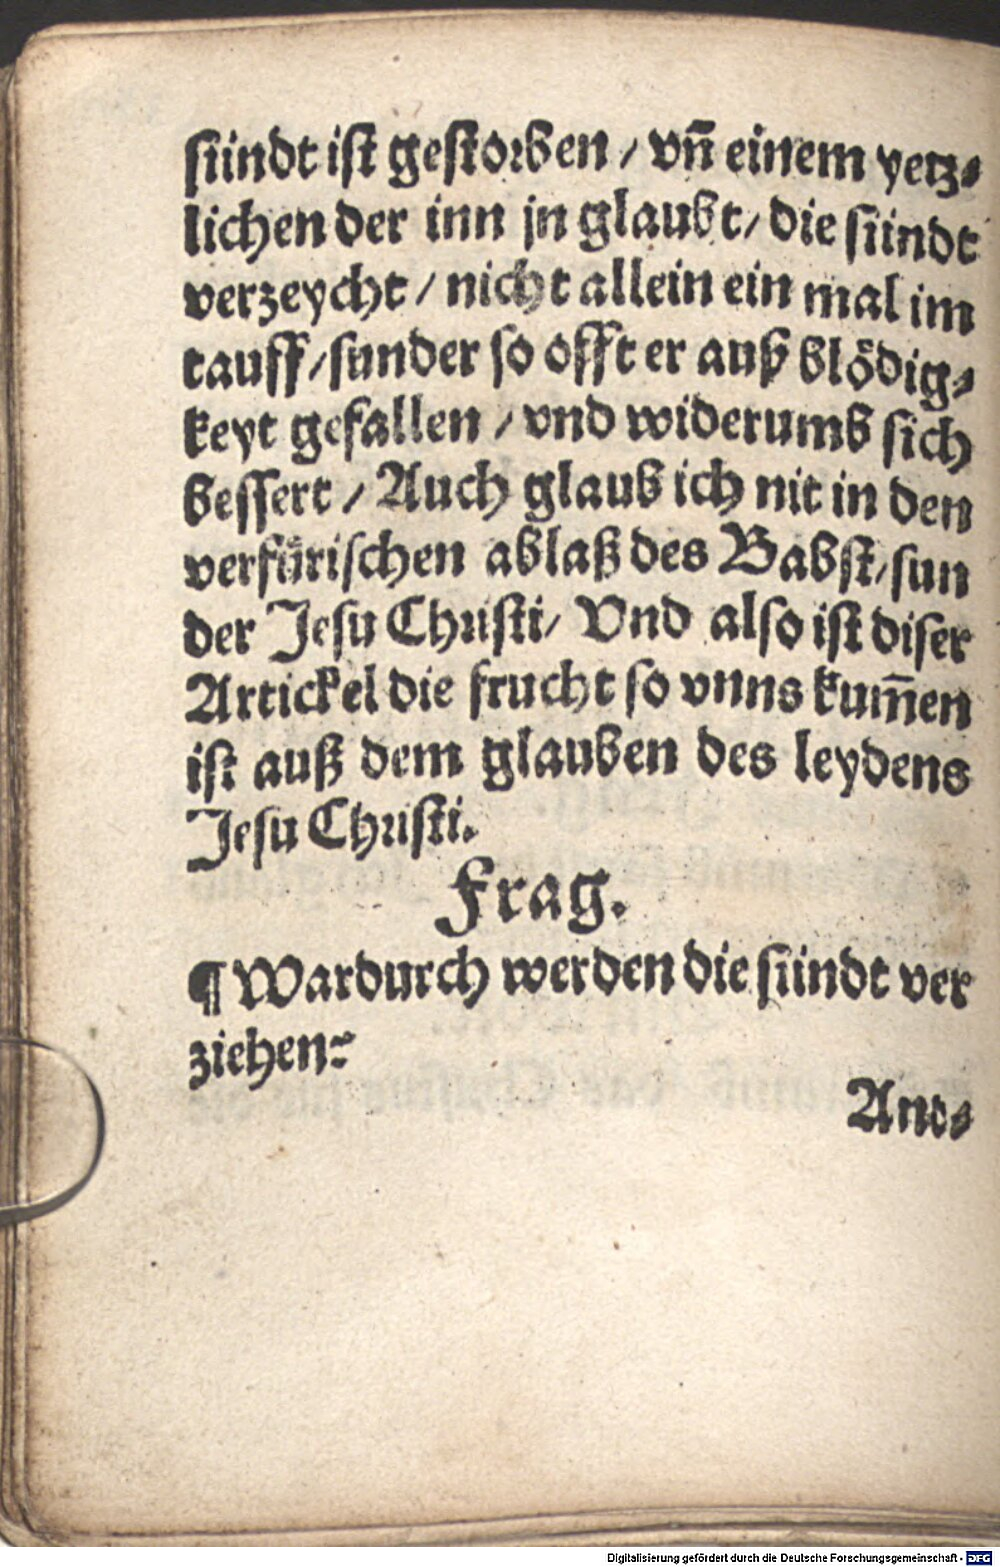 sündt ist gestorben / vn̄ einem yetz⸗
lichen der inn jn glaubt / die sündt
verzeycht / nicht allein ein mal im
tauff / sunder so offt er auß blödig⸗
keyt gefallen / vnd widerumb sich
bessert / Auch glaub ich nit in den
verfürischen ablaß des Babst / sun
der Jesu Christi / Vnd also ist diser
Artickel die frucht so vnns kum̄en
ist auß dem glauben des leydens
Jesu Christi.
Frag.
¶ Wardurch werden die sündt ver
ziehen?
Ant⸗
Digitalisierung gefördert durch die Deutsche Forschungsgemeinschaft - DFG